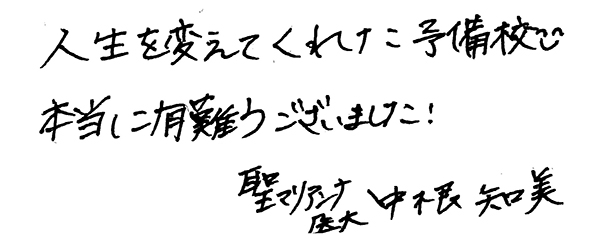 人生を変えてくれた予備校
本当に有難うございました!
聖マリアンナ医大 中根 知美